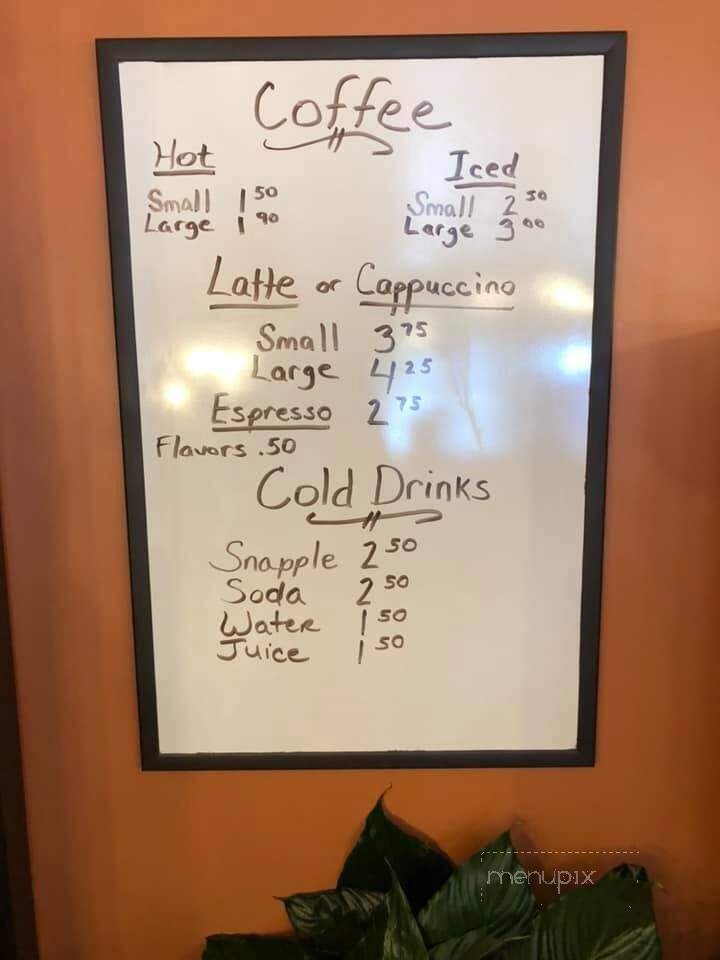 Coffee
Hot
Small 1 50
Large 1 90
Iced
Small 2 50
Large 3 00
Latte or Cappuccino
Small 3 75
Large 4 25
Espresso 2 75
Flavors .50
Cold Drinks
Snapple 2 50
Soda 2 50
Water 1 50
Juice 1 50
menupix